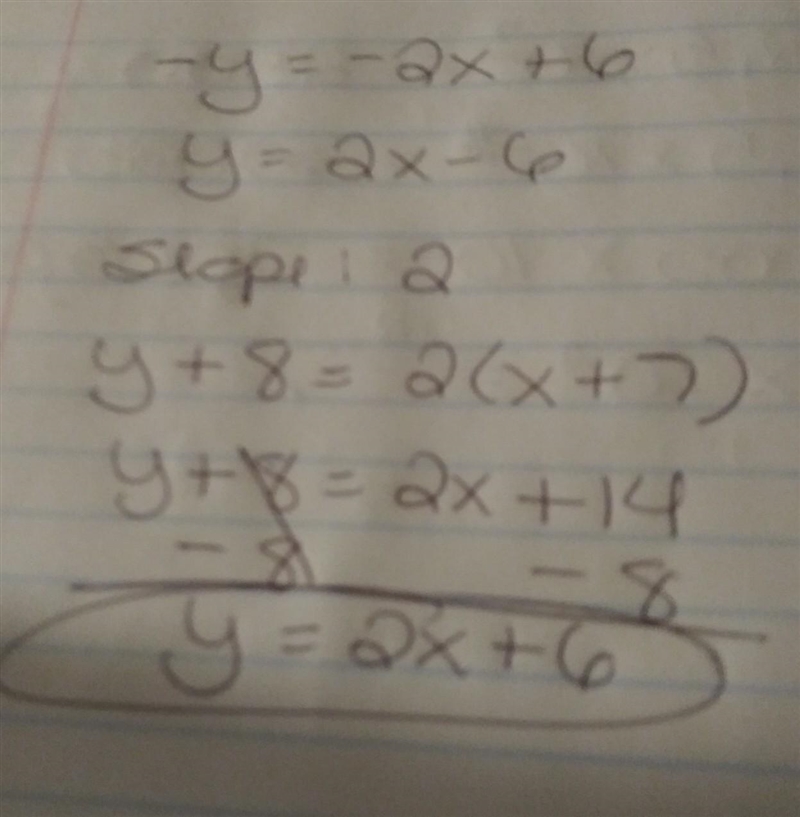 -y = -2x + 6
y = 2x - 6
Slope: 2
y + 8 = 2(x + 7)
y + 8 = 2x + 14
- 8 - 8
y = 2x + 6